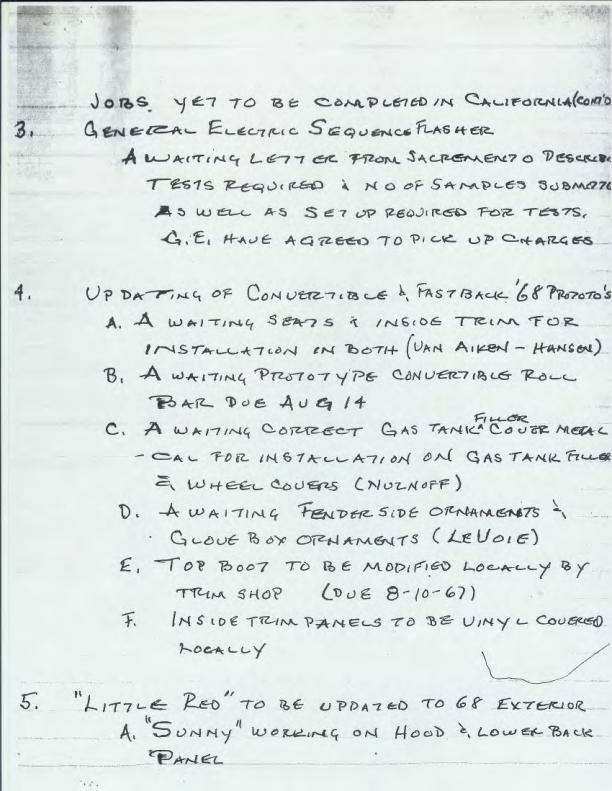 JOBS. YET TO BE COMPLETED IN CALIFORNIA (CONT'D
3. GENERAL ELECTRIC SEQUENCE FLASHER
AWAITING LETTER FROM SACREMENTO DESCRIB
TESTS REQUIRED & NO OF SAMPLES SUBMITTE
AS WELL AS SET UP REQUIRED FOR TESTS.
G.E. HAVE AGREED TO PICK UP CHARGES
4. UPDATING OF CONVERTIBLE & FASTBACK '68 PROTOTO'S
A. AWAITING SEATS & INSIDE TRIM FOR
INSTALLATION IN BOTH (VAN AIKEN - HANSEN)
B. AWAITING PROTOTYPE CONVERTIBLE ROLL
BAR DUE AUG 14
C. AWAITING CORRECT GAS TANK FILLER COVER METAL
- CAL FOR INSTALLATION ON GAS TANK FILLER
& WHEEL COVERS (NULNOFF)
D. AWAITING FENDER SIDE ORNAMENTS &
GLOVE BOX ORNAMENTS (LEVOIE)
E. TOP BOOT TO BE MODIFIED LOCALLY BY
TRIM SHOP (DUE 8-10-67)
F. INSIDE TRIM PANELS TO BE VINYL COVERED
LOCALLY
5. "LITTLE RED" TO BE UPDATED TO 68 EXTERIOR
A. "SUNNY" WORKING ON HOOD & LOWER BACK
PANEL